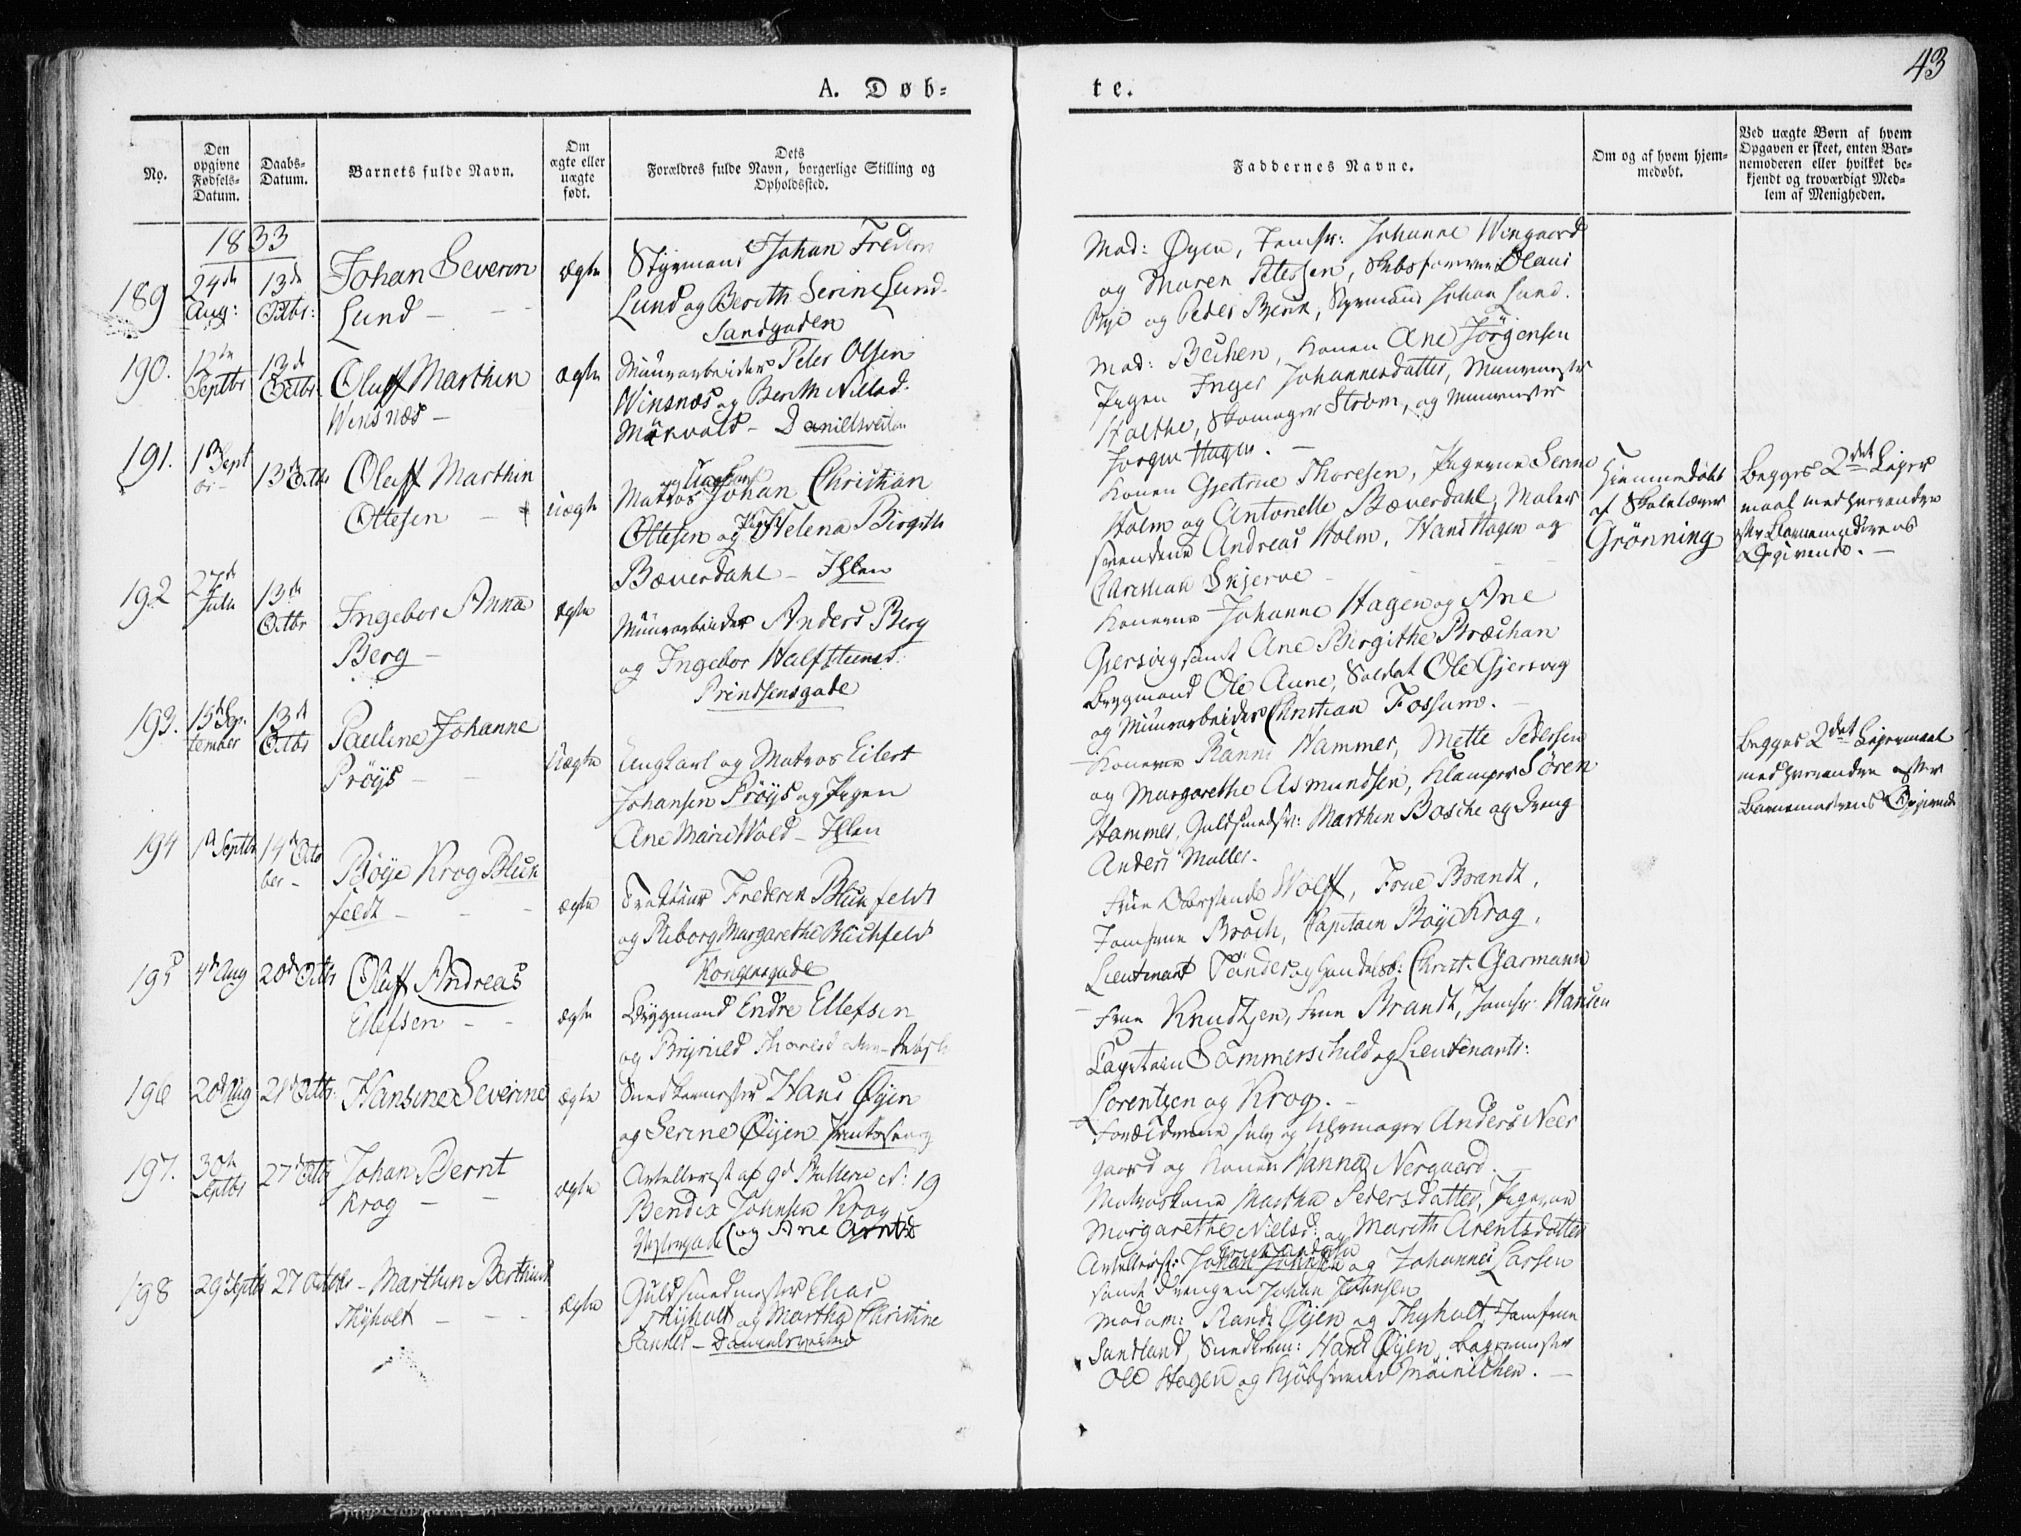 43
A. Døb-
te.
No.
Den opgivne Fødsels-Datum.
Daabs-Datum.
Barnets fulde Navn.
Om ægte eller uægte født.
Dets Forældres fulde Navn, borgerlige Stilling og Opholdssted.
Faddernes Navne.
Om og af hvem hjem-
medøbt.
Ved uægte Børn af hvem
Opgaven er skeet, enten Bar-
nemoderen eller hvilket be-
kjendt og troværdigt Med-
lem af Menigheden.
1833
189
24de Aug:
13de Octbr:
Johan Severin
Lund
ægte
Styrmand Johan Frederi
Lund og Berith Serine Lund
Sandgaden
Mad: Øyen, Jomfr: Johanne Wingaard
og Maren Petersen, Skibsfører Olaus
og Peder, Styrmand Johan Lund.
190.
12de Septbr
13de Octbr
Oluff Marthin
Winsnæs
ægte
Muurarbeider Peter Olsen
Winsnæs og Berith Nilsd.
Danielsveiten
Mad: Konen Ane Jörgensen
Pigen Inger Johannesdatter, Muurmester
Holthe, Skomager Ström, og Muurmester
Jorgen Hagen.
191.
1de Sept
br
13de Octbr
Oluff Marthin
Ottesen
Uægte
og Ungkarl
Matros Johan Christian
Ottesen og Pigen Helena Birgitte
Bæverdahl - Ihlen
Konen Gjertrue Thoresen, Pigerne Serine
Holm og Antonette Bæverdahl, Maler
svendene Andreas Holm, Hans Hagen og
Christian Skjerve
Hjemmedöbt
af Skolelærer
Grønning
Begges 2det Leier
maal med hverandre
efter Barnemoderens
Opgivende.
192
27de Julii
13de Octbr
Ingebor Anna
Berg
ægte
Muurarbeider Anders Berg
og Ingebor Halfstensd.
Prindsensgade
Konerne Johanne Hagen og Ane
Gjersvig samt Ane Birgithe Bræchan
Brygmand Ole Aune, Soldat Ole Gjersvig
og Muurarbeider Christian Fossum.
193.
15de Sep-
tember
13de Octbr
Pauline Johanne
Pröys
Uægte
Ungkarl og Matros Eilert
Johansen Pröys og Pigen
Ane Marie Wold - Ihlen
Konerne Hammer, Mette Pedersen
og Margarethe Asmundsen, Klamper Sören
Hammer, Guldsmedsv: Marthin Bosche og Dreng
Anders Moller.
Begges 2det Leiermaal
med hverandre efter
Barnemoderens Opgivende
194
1de Septbr
14de Octo
ber
Böye Krog
feldt
ægte
Frederik
og Margarethe
Kongensgade
Frue Oberstinde Wolff, Frue Brandt,
Jomfrue Broch, Capitain Böye Krog,
Lieutenant Tönder og Handelsb: Christ: Garmann
195
4de Aug
20de Octbr
Oluff Andreas
Ellefsen
ægte
Brygmand Endre Ellefsen
og
Frue Knudtzen, Frue Brandt, Jomfr: Hansen
Capitain Sommerschield og Lieutenants:
Lorentzen og Krog.
196
20de Aug
21de Octbr
Hansine Severine
ægte
Snedkermester Hans Øyen
og Serine Øyen
Forældrene selv og Uhrmager Anders Neer
gaard og Konen Hanna Nergaard.
197.
30te Septbr
27de Octbr
Johan Bernt
Krog
ægte
Artellerist af 9de Batterie N: 19
Bendix Johnsen Krog
og Ane Arntsd
Matroskone Martha Pedersdatter, Pigerne
Margarethe Nielsd: og Marith Arentsdatter
Artellerist: Johan Johnsen og Johannes Larsen
samt Drengen Johan Johnsen
198
29de Septbr
27 Octobr
Marthin Berthius
Thyholt
ægte
Guldsmedmester Elias
Thyholt og Martha Christine
Danielsveiten
Madam: Randi Øyen og Thyholt, Jomfrue
Sandland, Snedkerm: Hans Øyen, Bagermester
Ole Hagen og